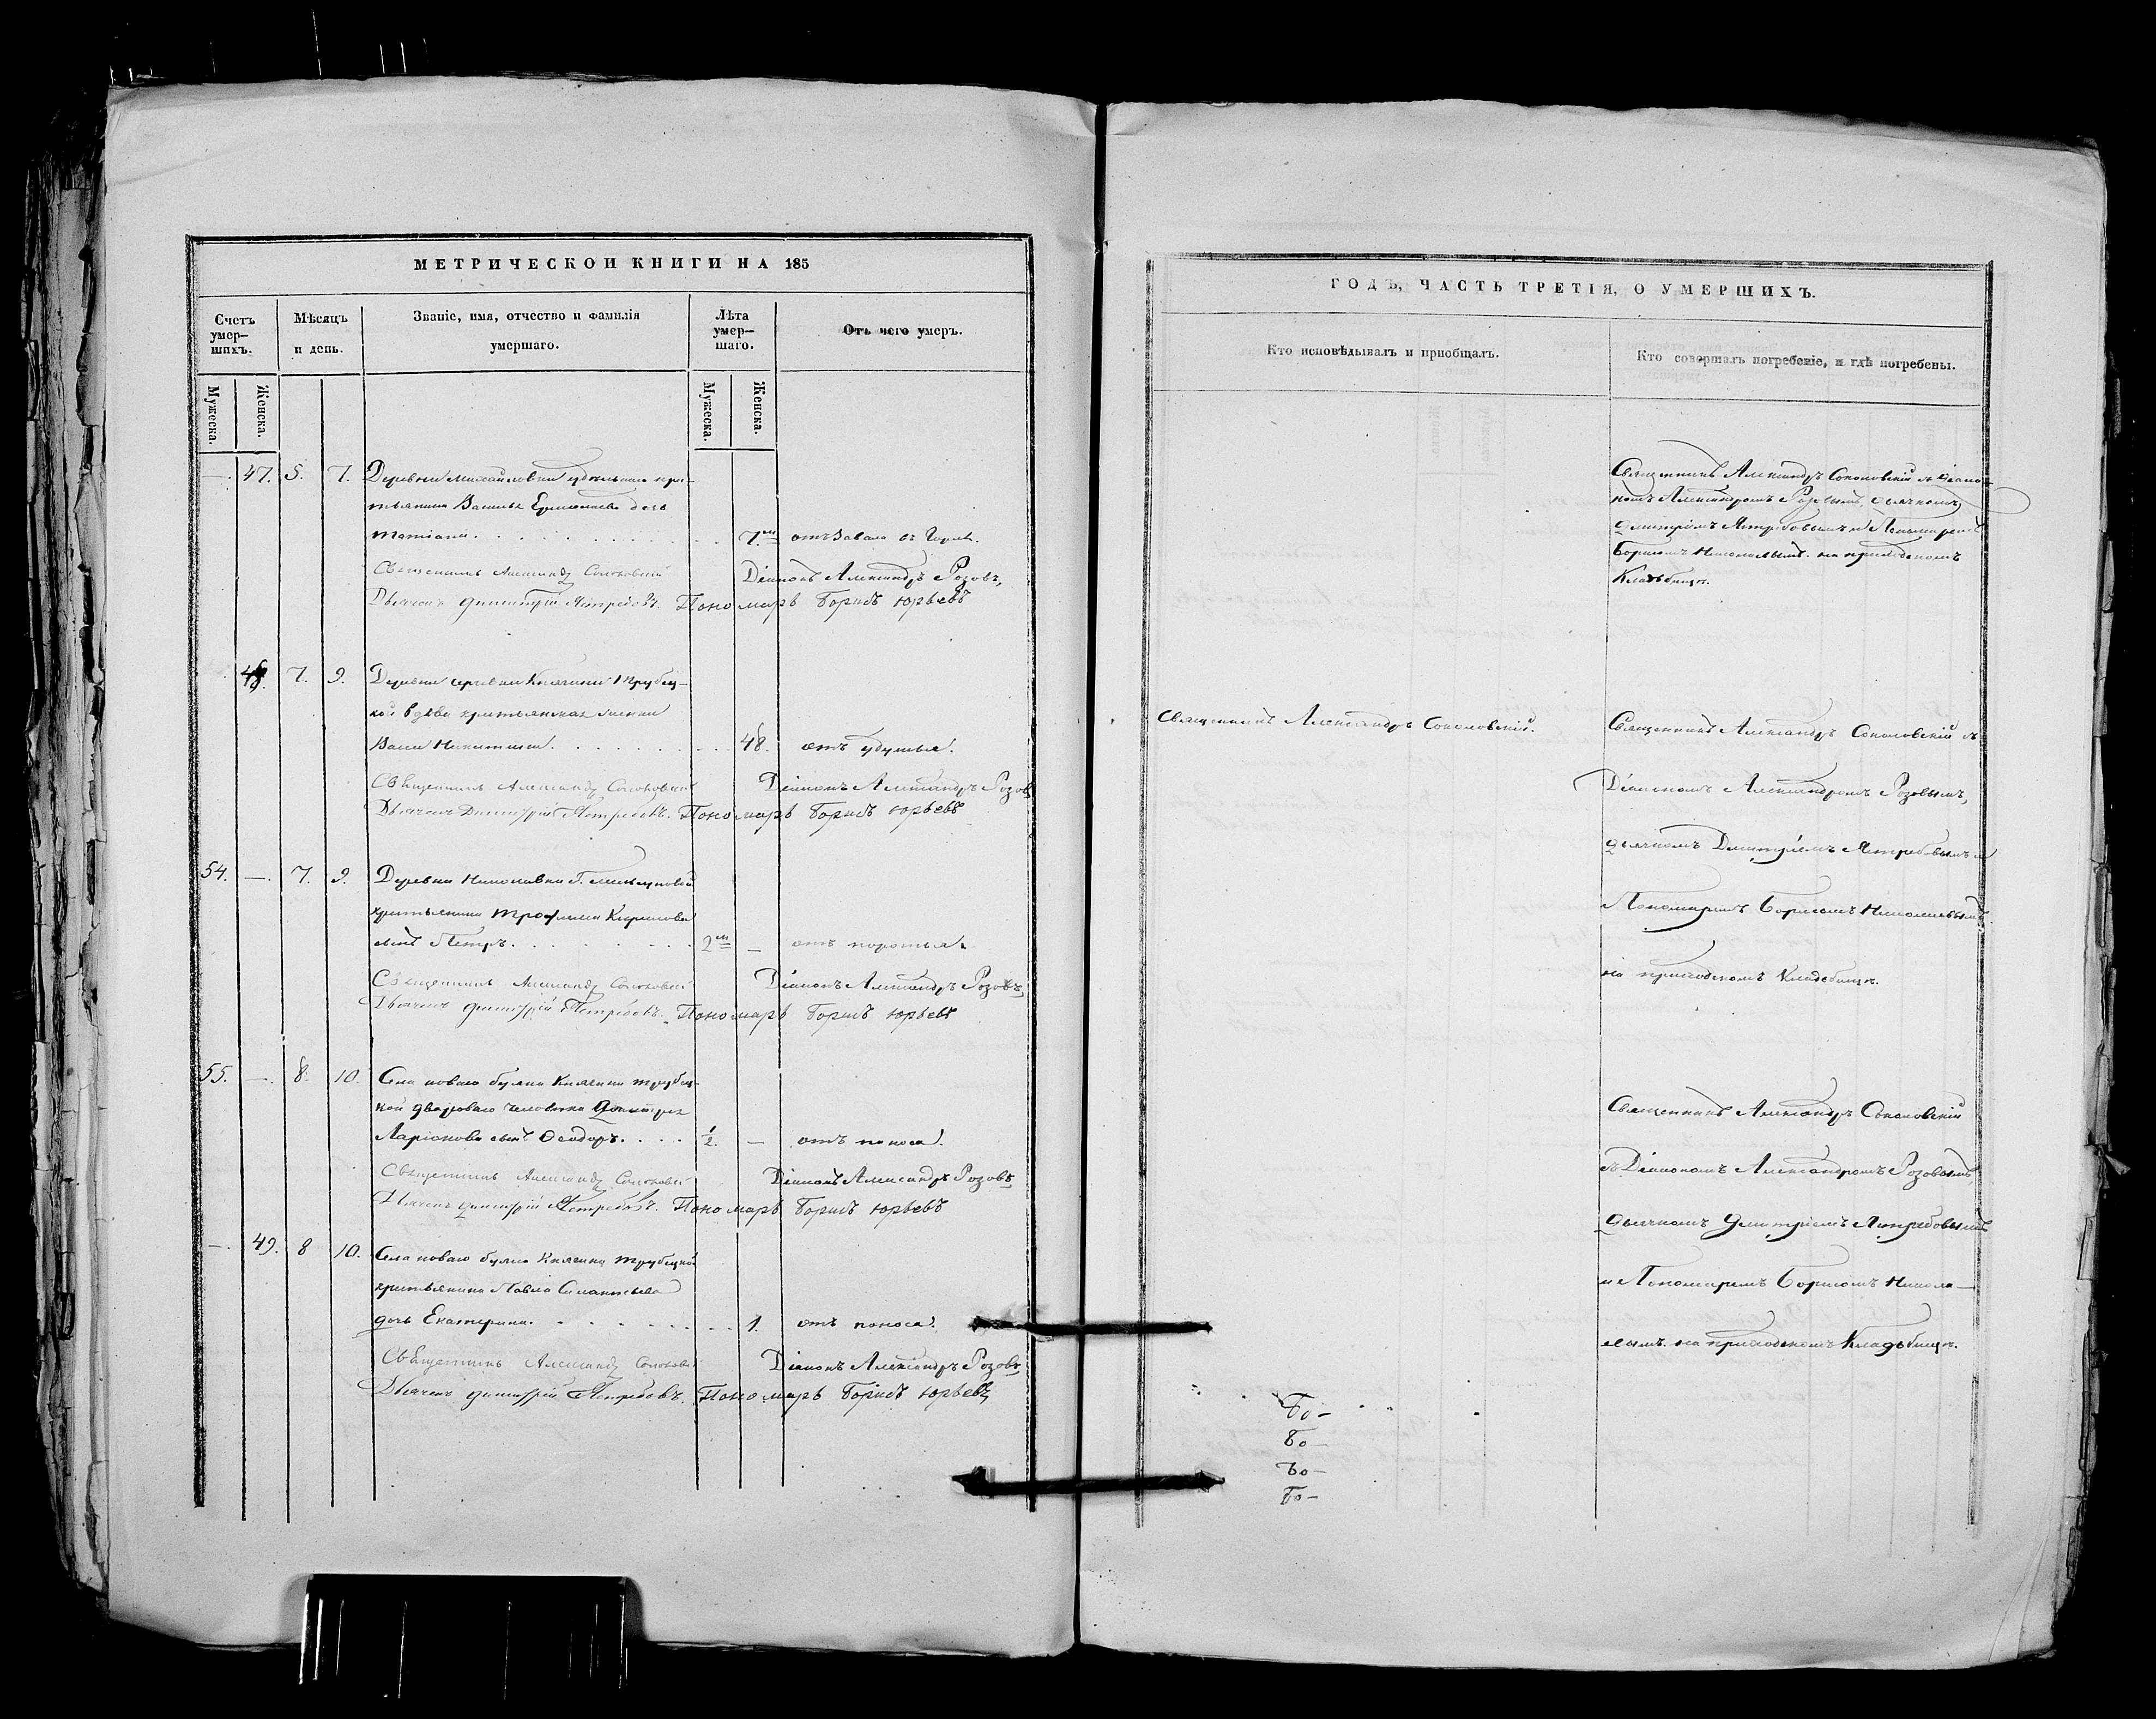 МЕТРИЧЕСКОЙ КНИГИ НА 185
Счетъ умер-шихъ.
Мѣсяцъ и день.
Званіе, имя, отчество и фамилія умершаго.
Лѣта умер-шаго.
Отъ чего умеръ.
Мужеска.
Женска.
Мужеска.
Женска.
—. 47. 5. 7. Деревни Михайловки удѣльнаго кре-
стьянина Василья Ермолаева дочь
7 м отъ Завала въ Горлѣ.
Священникъ Александръ Соколовскій Діаконъ Александръ Розовъ,
Дьячекъ Димитрій Ястребовъ. Пономарь Борисъ Юрьевъ
48. 7. 9. Деревни Княгини Трубец-
кой вдова крестьянская
Никитина. 48. отъ удушья.
Священникъ Александръ Соколовскій Діаконъ Александръ Розовъ
Дьячекъ Димитрій Ястребовъ. Пономарь Борисъ Юрьевъ
54. —. 7. 9. Деревни Г.
крестьянина Трофима Кирилова
сынъ Петръ. 2 м —
Священникъ Александръ Соколовскій Діаконъ Александръ Розовъ
Дьячекъ Димитрій Ястребовъ. Пономарь Борисъ Юрьевъ
55. —. 8. 10. Села новаго Княгини Трубец-
кой двороваго человѣка Димитрія
Ларіонова сынъ Ѳеодоръ. 1/2. — отъ поноса.
Священникъ Александръ Соколовскій Діаконъ Александръ Розовъ
Дьячекъ Димитрій Ястребовъ. Пономарь Борисъ Юрьевъ
—. 49. 8 10. Села новаго Княгини Трубецкой
крестьянина Павла Силантьева
дочь Екатерина. 1. отъ поноса.
Священникъ Александръ Соколовскій Діаконъ Александръ Розовъ
Дьячекъ Димитрій Ястребовъ. Пономарь Борисъ Юрьевъ
ГОДЪ, ЧАСТЬ ТРЕТІЯ, О УМЕРШИХЪ.
Кто исповѣдывалъ и пріобщалъ.
Кто совершалъ погребеніе, и гдѣ погребены.
Священникъ Александръ Соколовскій съ Діако-
номъ Александромъ Розовымъ, дьячкомъ
Димитріемъ Ястребовымъ и Пономаремъ
Борисомъ Николаевымъ на приходскомъ
Кладбищѣ.
Священникъ Александръ Соколовскій.
Священникъ Александръ Соколовскій съ
Діакономъ Александромъ Розовымъ,
дьячкомъ Димитріемъ Ястребовымъ и
Пономаремъ Борисомъ Николаевымъ.
на приходскомъ Кладбищѣ.
Священникъ Александръ Соколовскій
съ Діакономъ Александромъ Розовымъ,
дьячкомъ Димитріемъ Ястребовымъ
и Пономаремъ Борисомъ Никола-
евымъ на приходскомъ Кладбищѣ.
Бо-
Бо-
Бо-
Бо-